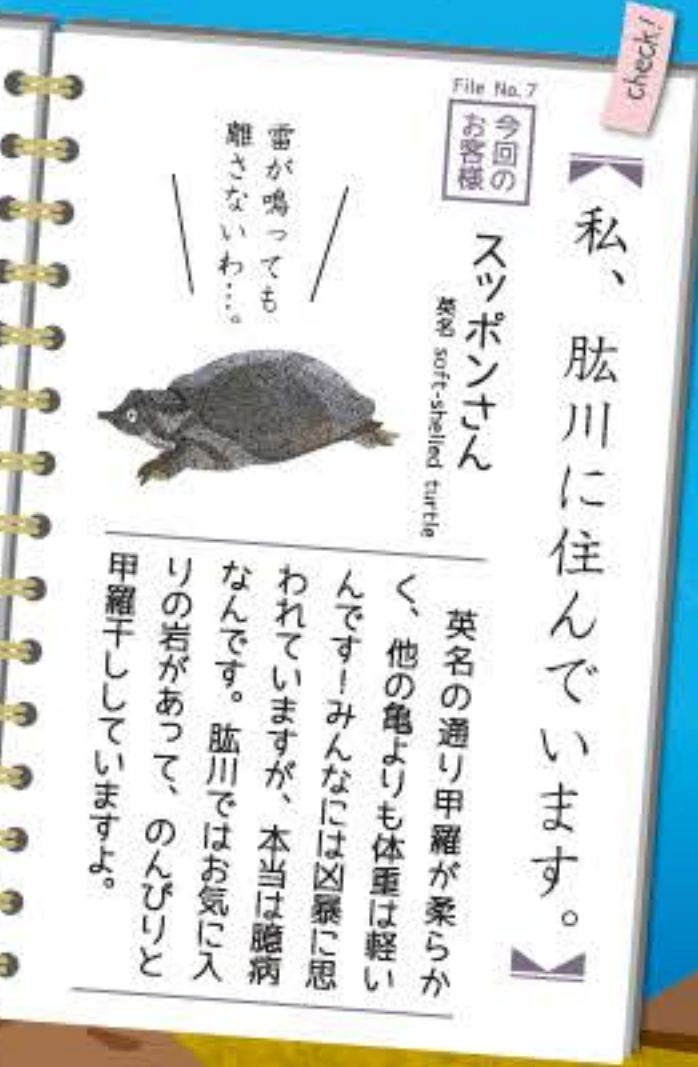 check!
私、肱川に住んでいます。
File No.7
今回の
お客様
スッポンさん
英名 soft-shelled turtle
雷が鳴っても
離さないわ…。
英名の通り甲羅が柔らか
く、他の亀よりも体重は軽い
んです!みんなには凶暴に思
われていますが、本当は臆病
なんです。肱川ではお気に入
りの岩があって、のんびりと
甲羅干ししていますよ。